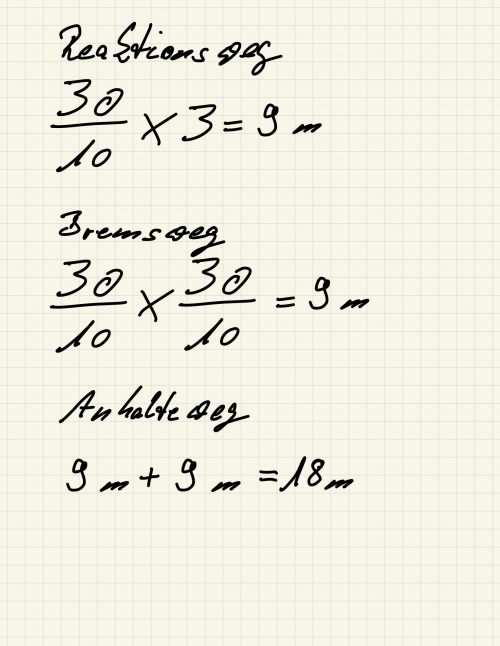 Reaktionsweg
30/10 × 3 = 9 m
Bremsweg
30/10 × 30/10 = 9 m
Anhalteweg
9 m + 9 m = 18 m